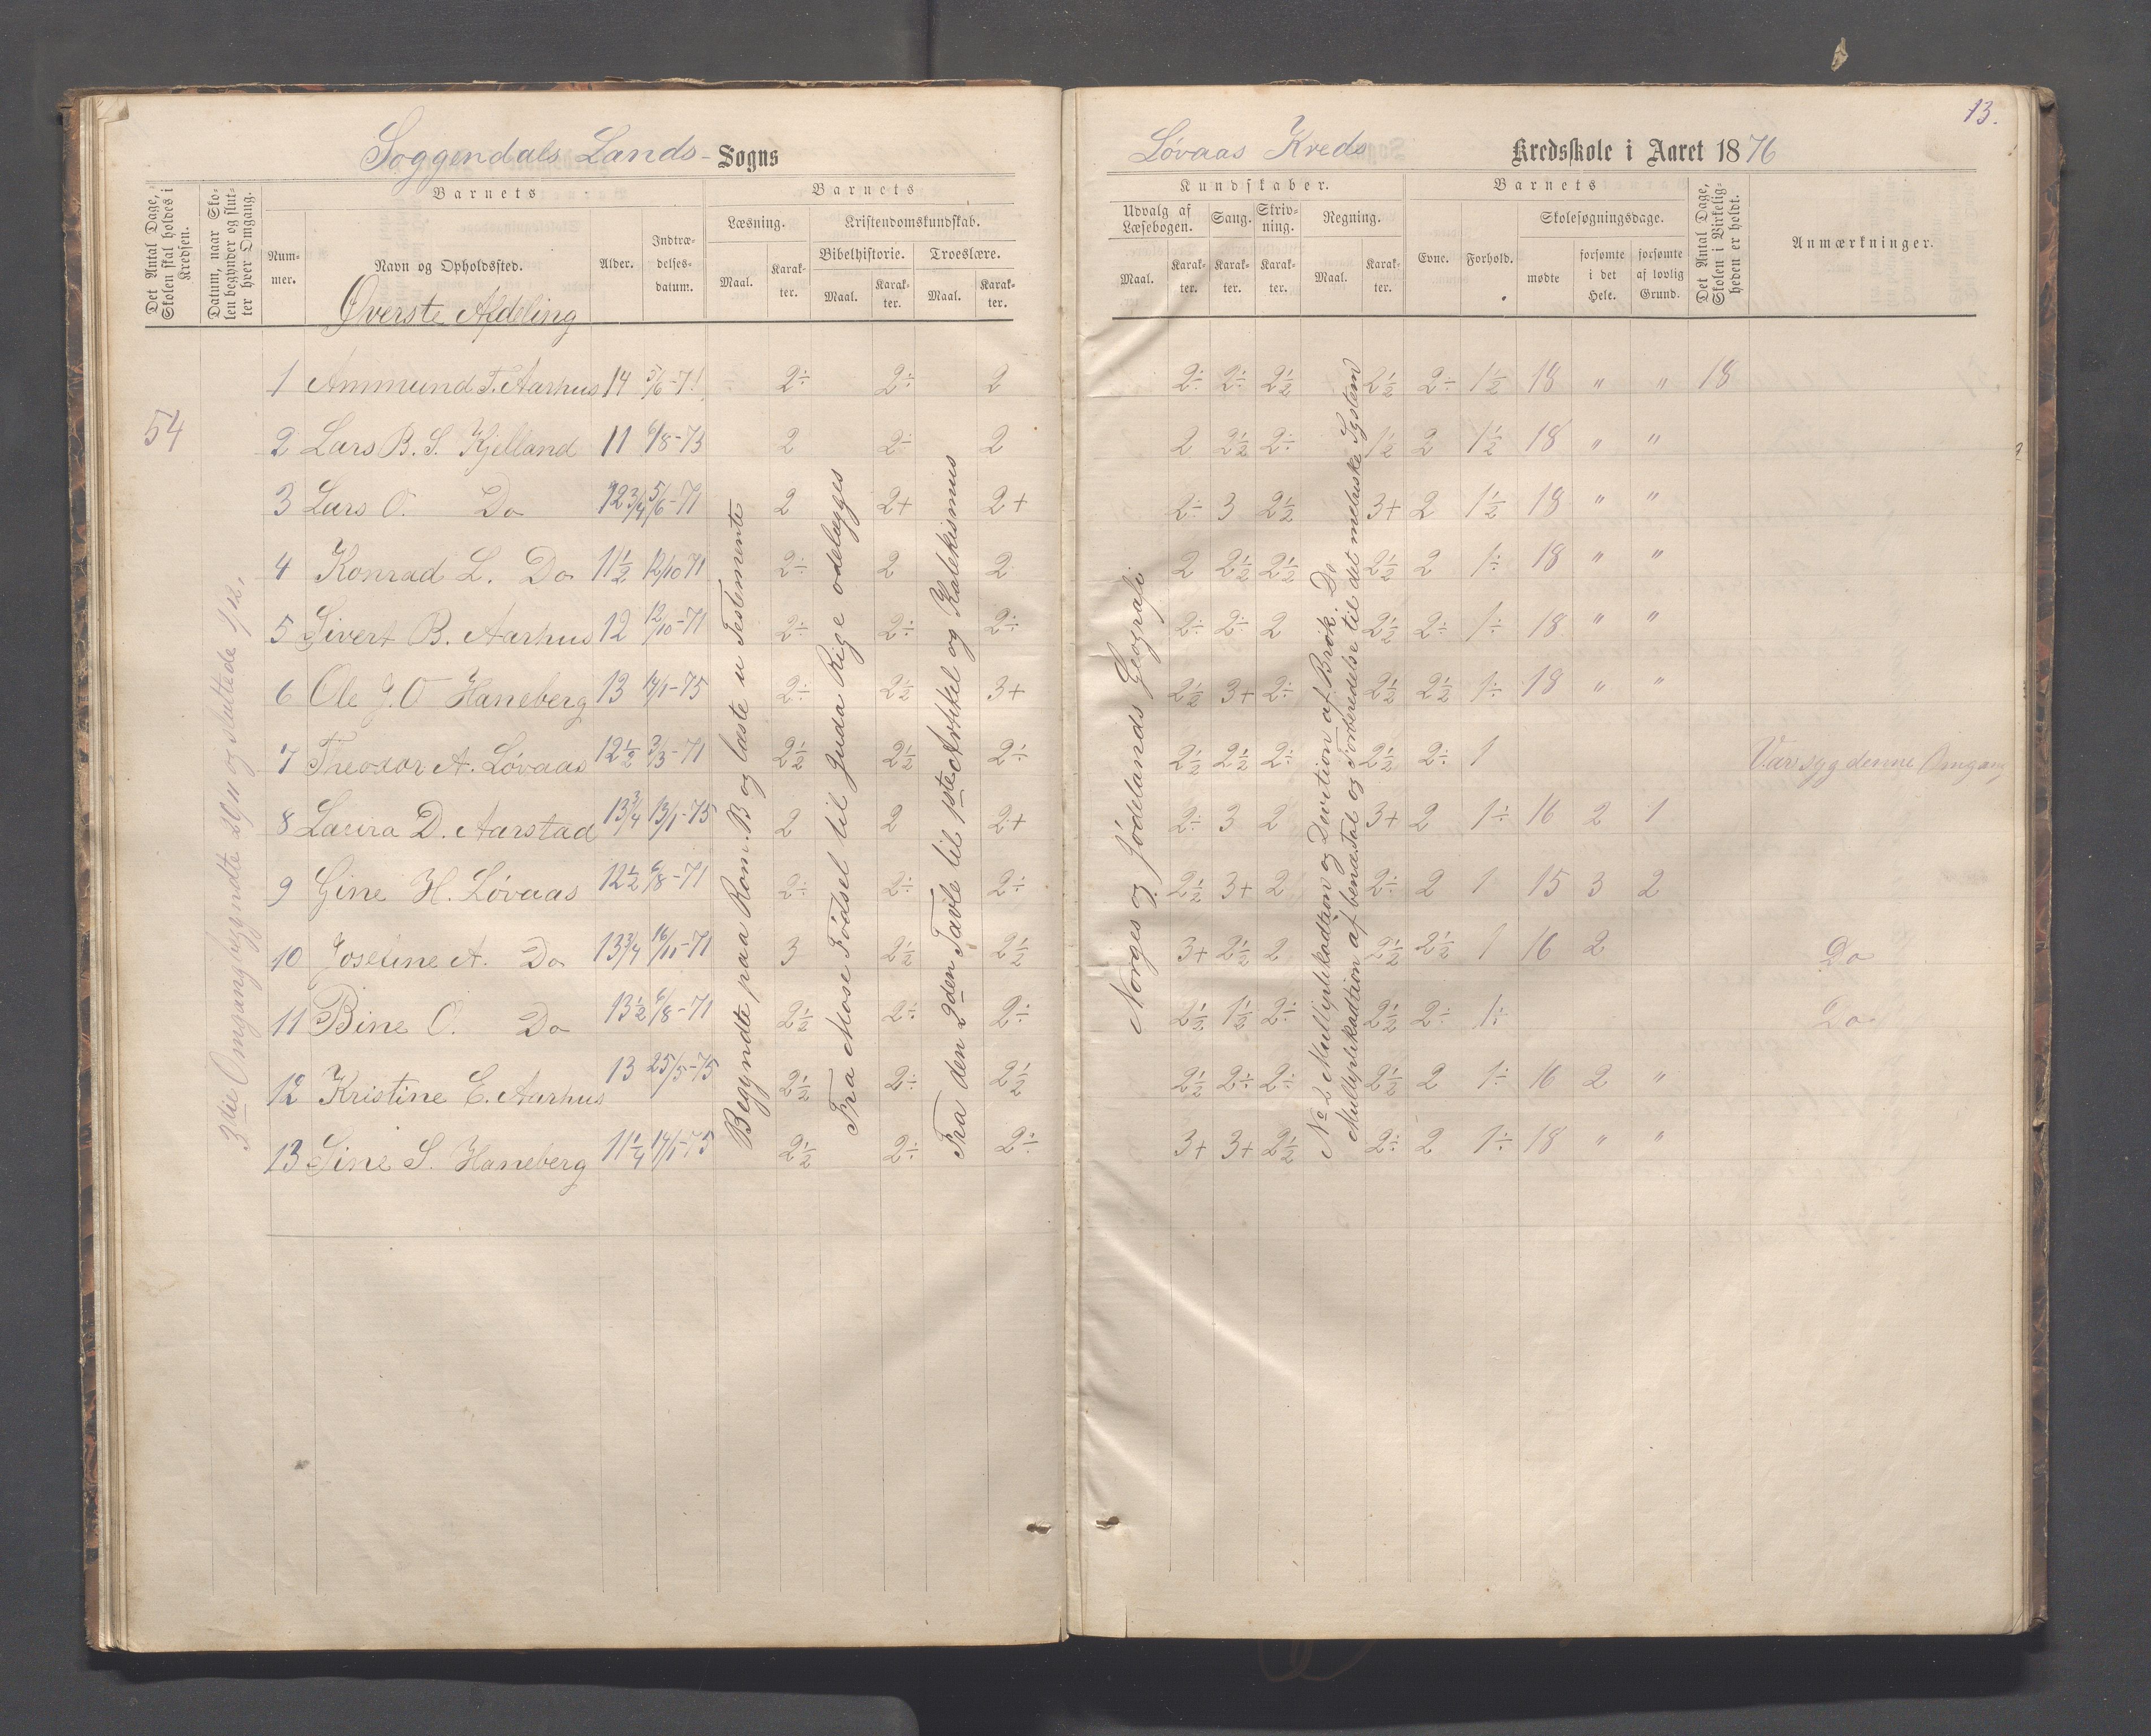 13.
Soggendals Lands- Sogns
Løvaas Kreds Kredsskole i Aaret 1876
Det Antal Dage, Skolen skal holdes i Kredsen.
Datum, naar Skolen begynder og slutter hver Omgang.
Barnets
Nummer.
Navn og Opholdssted.
Alder.
Indtrædelses-datum.
Barnets
Læsning.
Maal.
Karakter.
Kristendomskundskab.
Bibelhistorie.
Maal.
Karakter.
Troeslære.
Maal.
Karakter.
Kundskaber.
Udvalg af Læsebogen.
Maal.
Karakter.
Sang.
Karakter.
Skrivning.
Karakter.
Regning.
Maal.
Karakter.
Barnets
Evne.
Forhold.
Skolesøgningsdage.
mødte
forsømte i det Hele.
forsømte af lovlig Grund.
Det Antal Dage, Skolen i Virkeligheden er holdt.
Anmærkninger.
Øverste Afdeling
54
3die Omgang begyndte 20/11 og sluttede 1/12.
1 Ammund T. Aarhus 14 5/6-71 2÷ 2÷ 2 2÷ 2÷ 2½ 2½ 2÷ 1½ 18 " " 18
2 Lars B. S. Kjelland 11 6/8-73 2 2÷ 2 2 2½ 2÷ 1½ 2 1½ 18 " "
3 Lars O. Do 12¾ 5/6-71 2 2+ 2+ 2÷ 3 2½ 3+ 2 1½ 18 " "
4 Konrad L. Do 11½ 12/10 71 2÷ 2 2 2 2½ 2½ 2½ 2 1÷ 18 " "
5 Sivert B. Aarhus 12 12/10-71 2÷ 2÷ 2÷ 2÷ 2÷ 2 2½ 2÷ 1÷ 18 " "
6 Ole J. O Haneberg 13 14/1-75 2÷ 2½ 3+ 2½ 3+ 2÷ 2½ 2½ 1÷ 18 " "
7 Theodor A. Løvaas 12½ 3/3-71 2½ 2½ 2÷ 2½ 2½ 2÷ 2½ 2÷ 1 Var syg denne Omgang
8 Laura D. Aarstad 13¾ 13/1-75 2 2 2+ 2÷ 3 2 3+ 2 1÷ 16 2 1
9 Gine H. Løvaas 12½ 6/8-71 2÷ 2÷ 2÷ 2½ 3+ 2 2÷ 2 1 15 3 2
10 Josefine A. Do 13¾ 16/11-71 3 2½ 2½ 3+ 2½ 2 2½ 2½ 1 16 2 Do
11 Bine O. Do 13½ 6/8-71 2½ 2÷ 2÷ 2½ 1½ 2÷ 2½ 2÷ 1÷ Do
12 Kristine E. Aarhus 13 25/5-75 2½ 2÷ 2½ 2½ 2÷ 2÷ 2½ 2 1÷ 16 2 "
13 Sine S. Haneberg 11¼ 14/1-75 2½ 2÷ 2÷ 3+ 3+ 2½ 2÷ 2 1÷ 18 " "
Begyndte paa Rom. B og læste u Testemente
Fra Mose Fødsel til Juda Rige ødelægges
Fra den 2den Tavle til 1ste Artikkel og Katekismus
Norges og Jødelands Geografi
No 2 Multiplikadtion og Divition af Brøk. Do
Multiplikadtion af benæ Tal og Forberedelse til det metriske System